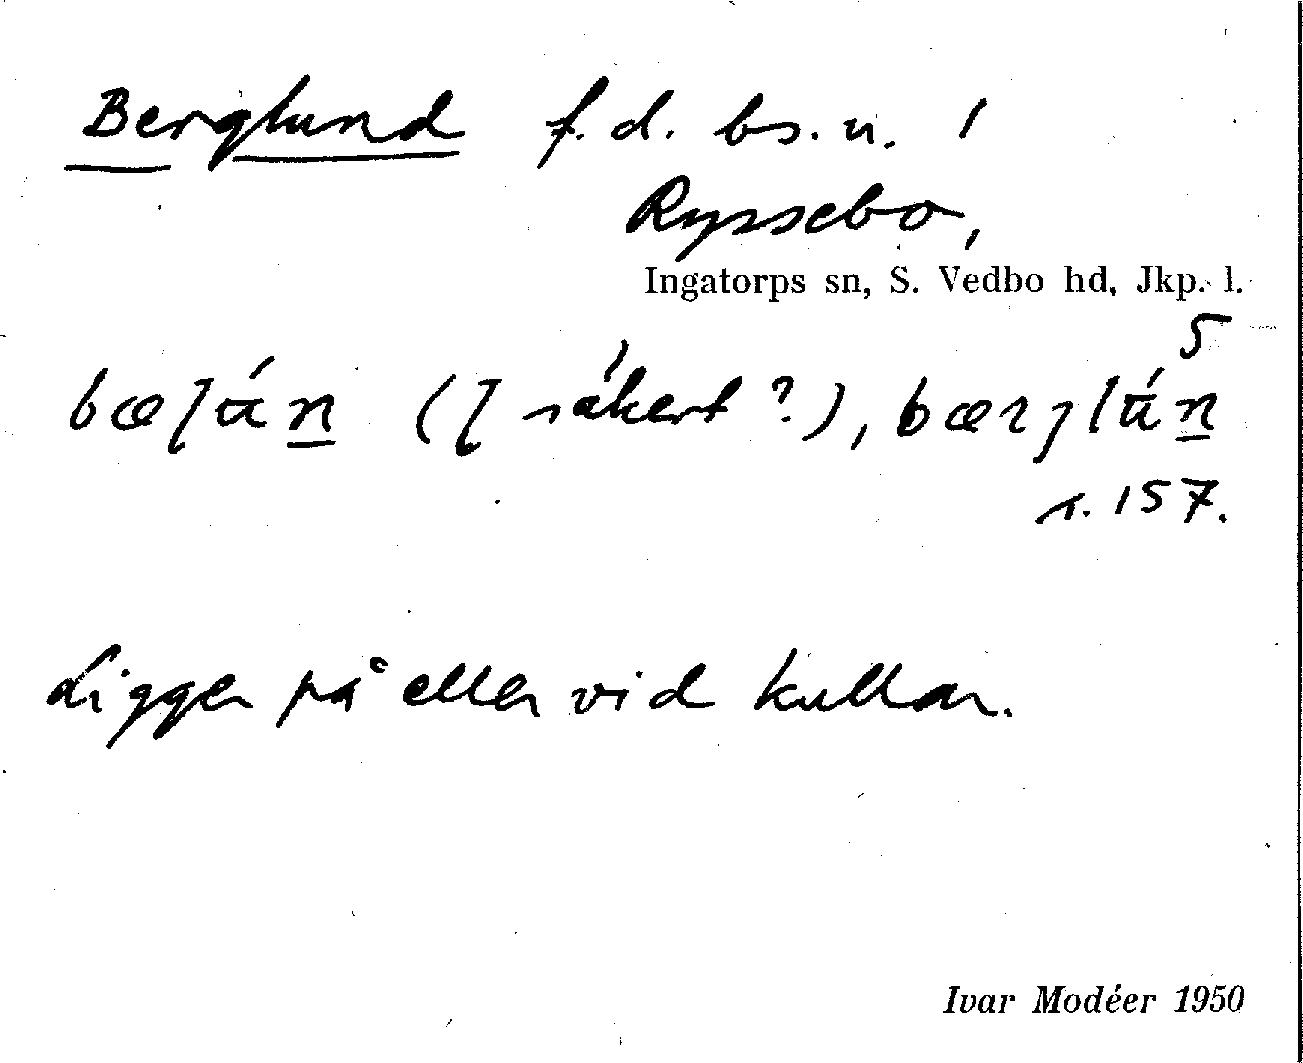 Berglund f.d. bs. u. /
Ryssebo,
Ingatorps sn, S. Vedbo hd, Jkp. l.
5
( säkert ?),
s. 157.
Ligger på eller vid kullar.
Ivar Modéer 1950